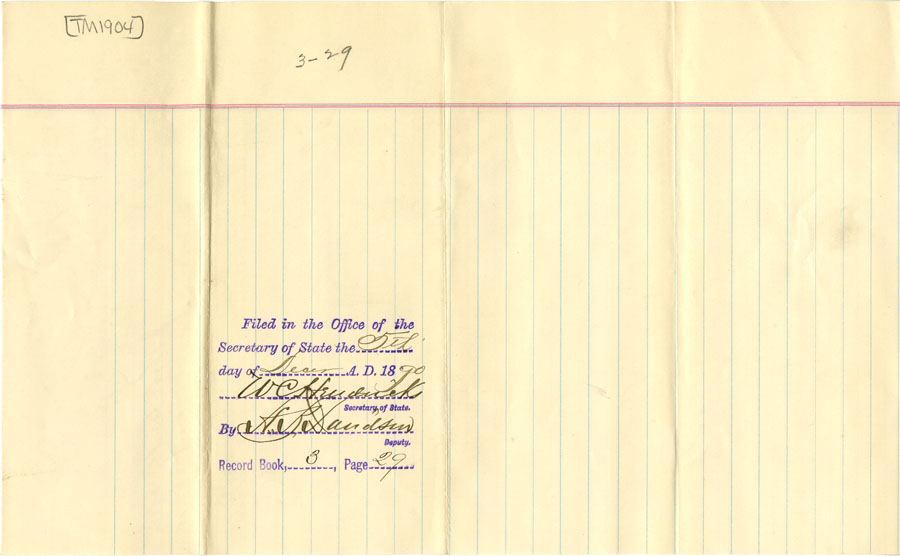 [TM1904]
3-29
Filed in the Office of the
Secretary of State the 5th
day of Decr A. D. 1890
W C Hendricks
Secretary of State.
By
Deputy.
Record Book, 3, Page 29